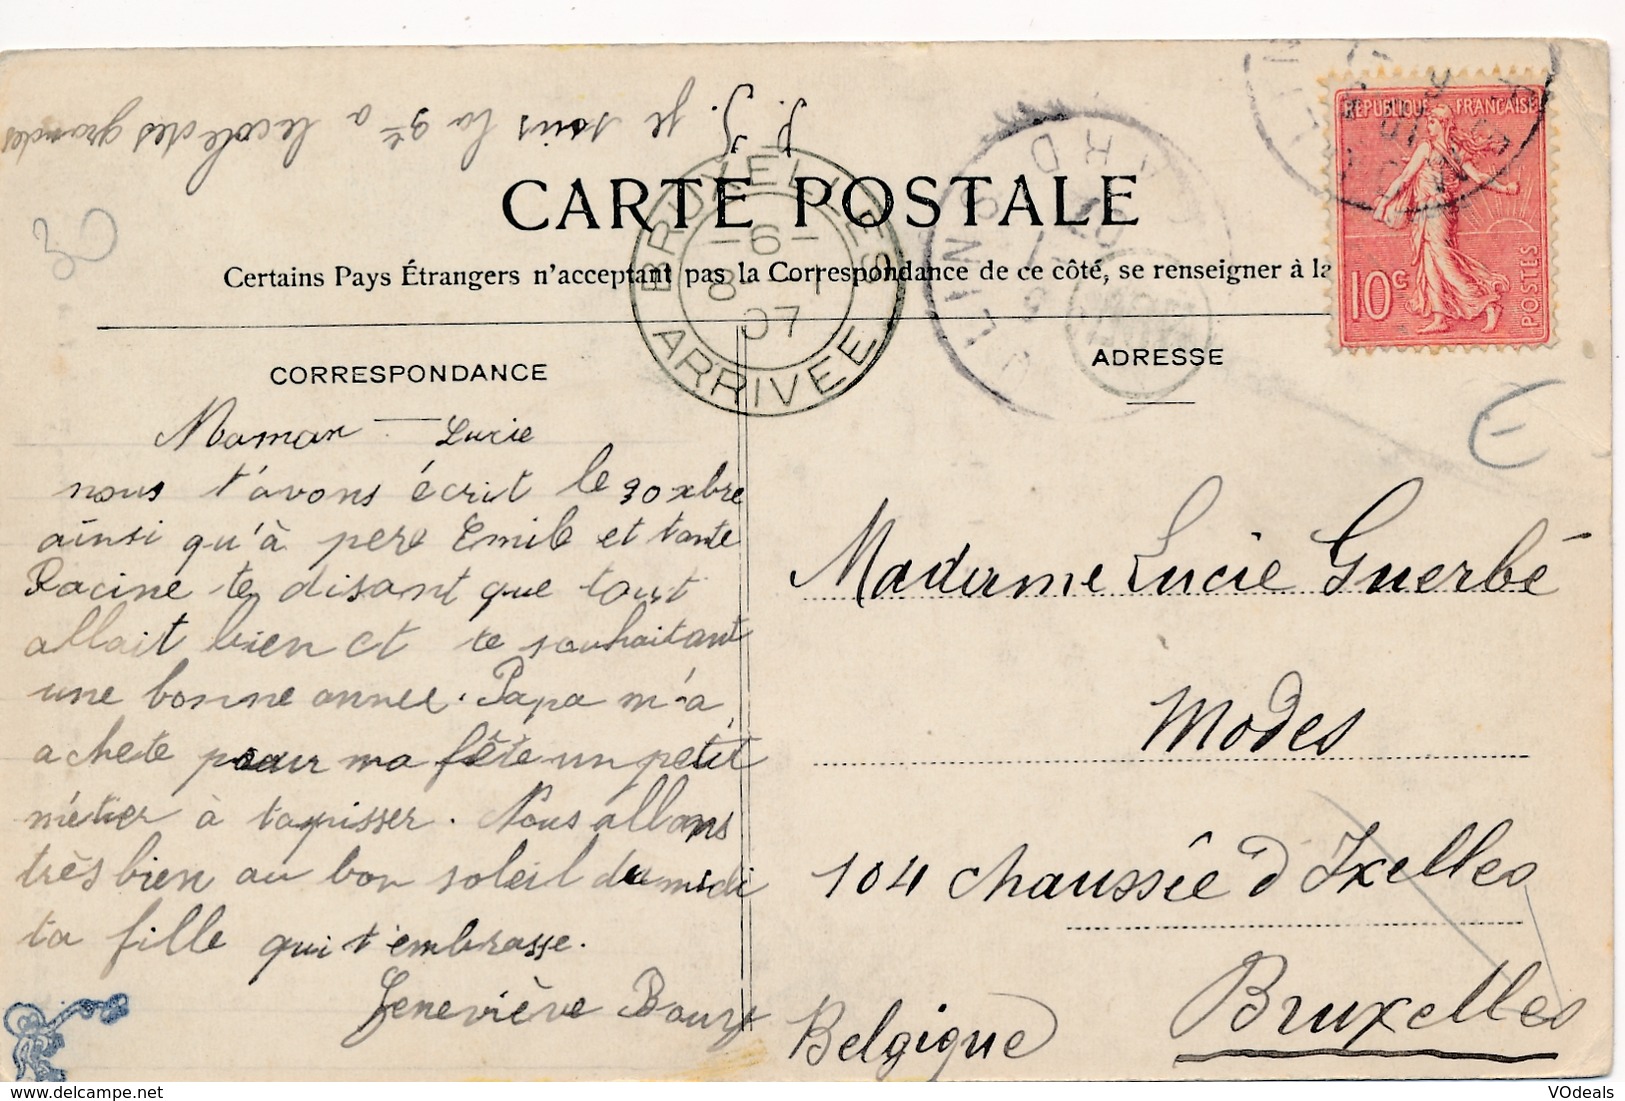 P.S. je suis la 9e a lecole des grandes
CARTE POSTALE
Certains Pays Étrangers n'acceptant pas la Correspondance de ce côté, se renseigner à la
REPUBLIQUE FRANÇAISE
10c
POSTES
BRUXELLES
-6-
8-1
07
ARRIVEE
30
CORRESPONDANCE
Maman - Lucie
nous t'avons écrit le 30 xbre
ainsi qu'à pere Emile et tante
Racine te disant que tout
allait bien et te souhaitant
une bonne annee. Papa m'a
achete pour ma fête un petit
métier à tapisser. Nous allons
très bien au bon soleil du midi
ta fille qui t'embrasse.
Geneviève
ADRESSE
Madame Lucie Guerbé
Modes
104 chaussée d'Ixelles
Bruxelles
Belgique
VOdeals